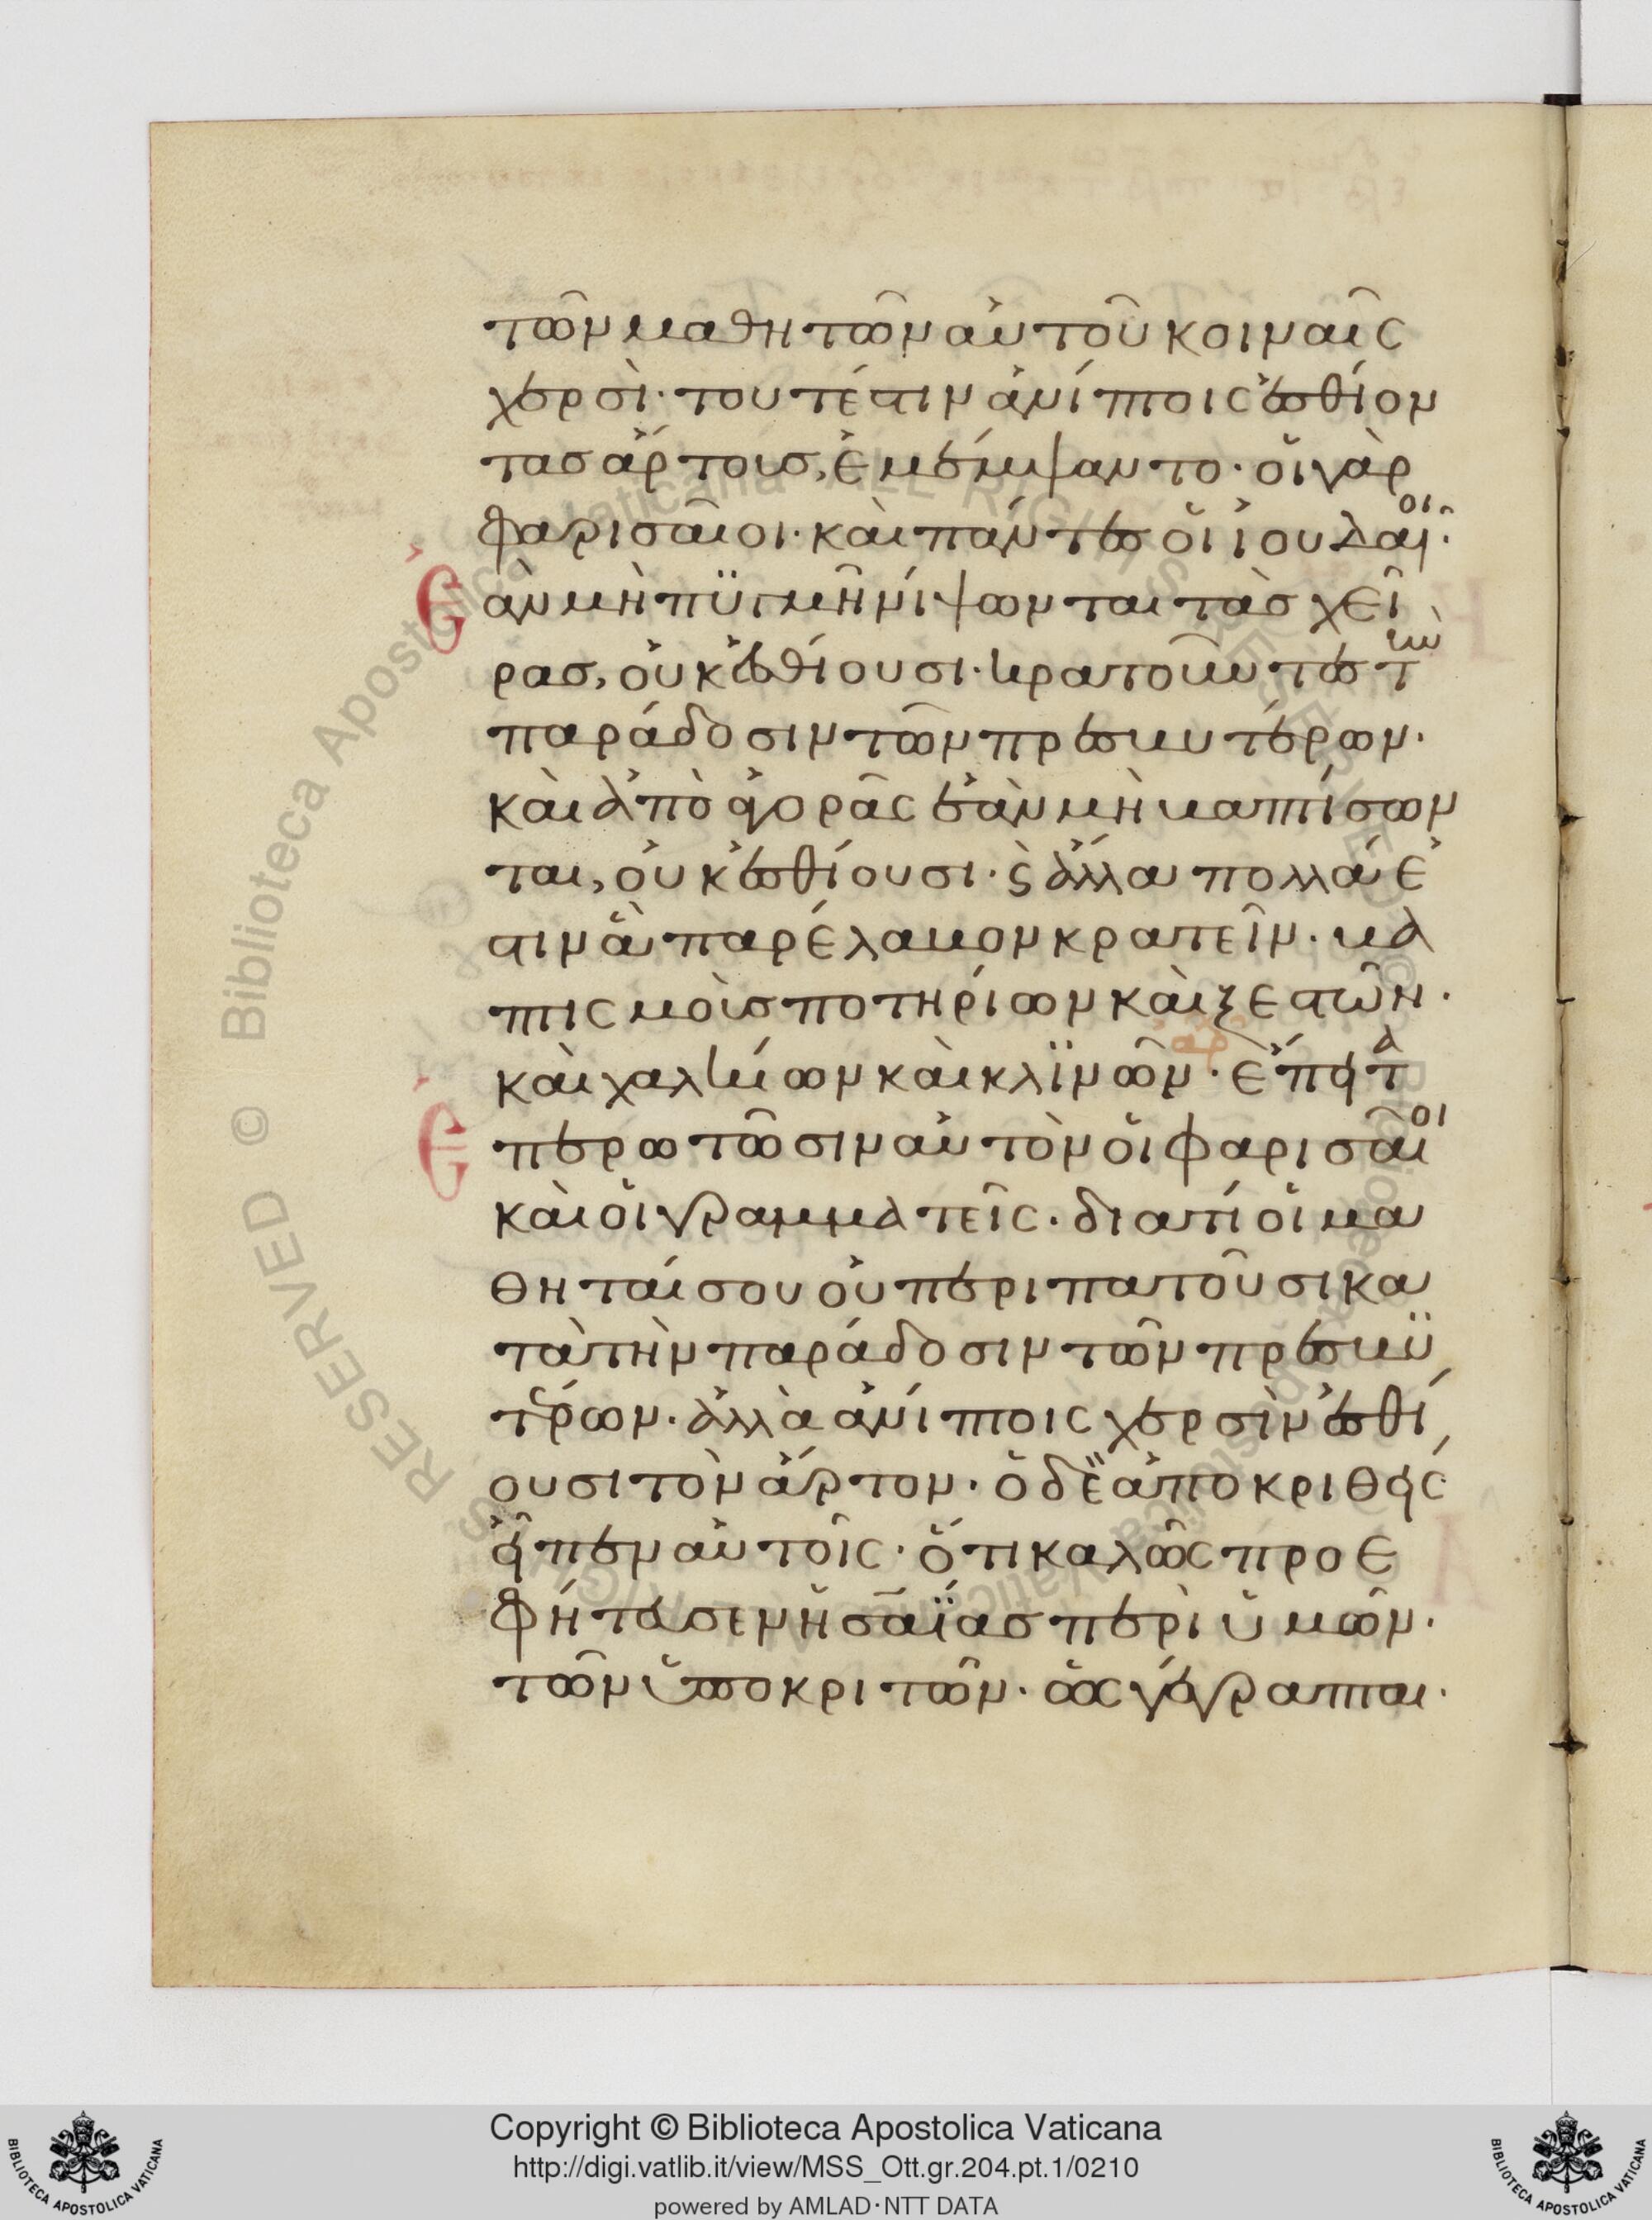 τῶν μαθητῶν αὐτοῦ κοιναῖς
χερσὶ· τουτέστιν ἀνίπτοις ἐσθίον
τας ἄρτους, ἐμέμψαντο· οἱ γὰρ
φαρισαῖοι· καὶ πάντες οἱ ἰουδαῖοι·
Ἐὰν μὴ πϋγμῆ νίψωνται τὰς χεῖ
ρας, οὐκ ἐσθίουσι· κρατοῦντες τὴν
παράδοσιν τῶν πρεσβυτέρων·
καὶ ἀπὸ ἀγορᾶς ἐὰν μὴ βαπτίσων
ται, οὐκ ἐσθίουσι· ϛ ἄλλα πολλά ἐ
στιν ἃ παρέλαβον κρατεῖν· βα
πτισμοὺς ποτηρίων καὶ ξεστῶν·
καὶ χαλκίων καὶ κλϊνῶν· ἔπειτα
Ἐπερωτῶσιν αὐτὸν οἱ φαρισαῖοι
καὶ οἱ γραμματεῖς· διατί οἱ μα
θηταί σου οὐ περιπατοῦσι κα
τὰ τὴν παράδοσιν τῶν πρεσβϋ
τέρων· ἀλλὰ ἀνίπτοις χερσὶν ἐσθί
ουσι τὸν ἄρτον· ὁ δὲ ἀποκριθείς
εἶπεν αὐτοῖς· ὅτι καλῶς προε
φήτευσεν ἡσαΐας περὶ ὑμῶν·
τῶν ὑποκριτῶν· ὡς γέγραπται·
Copyright © Biblioteca Apostolica Vaticana
http://digi.vatlib.it/view/MSS_Ott.gr.204.pt.1/0210
powered by AMLAD·NTT DATA
BIBLIOTECA APOSTOLICA VATICANA
BIBLIOTECA APOSTOLICA VATICANA